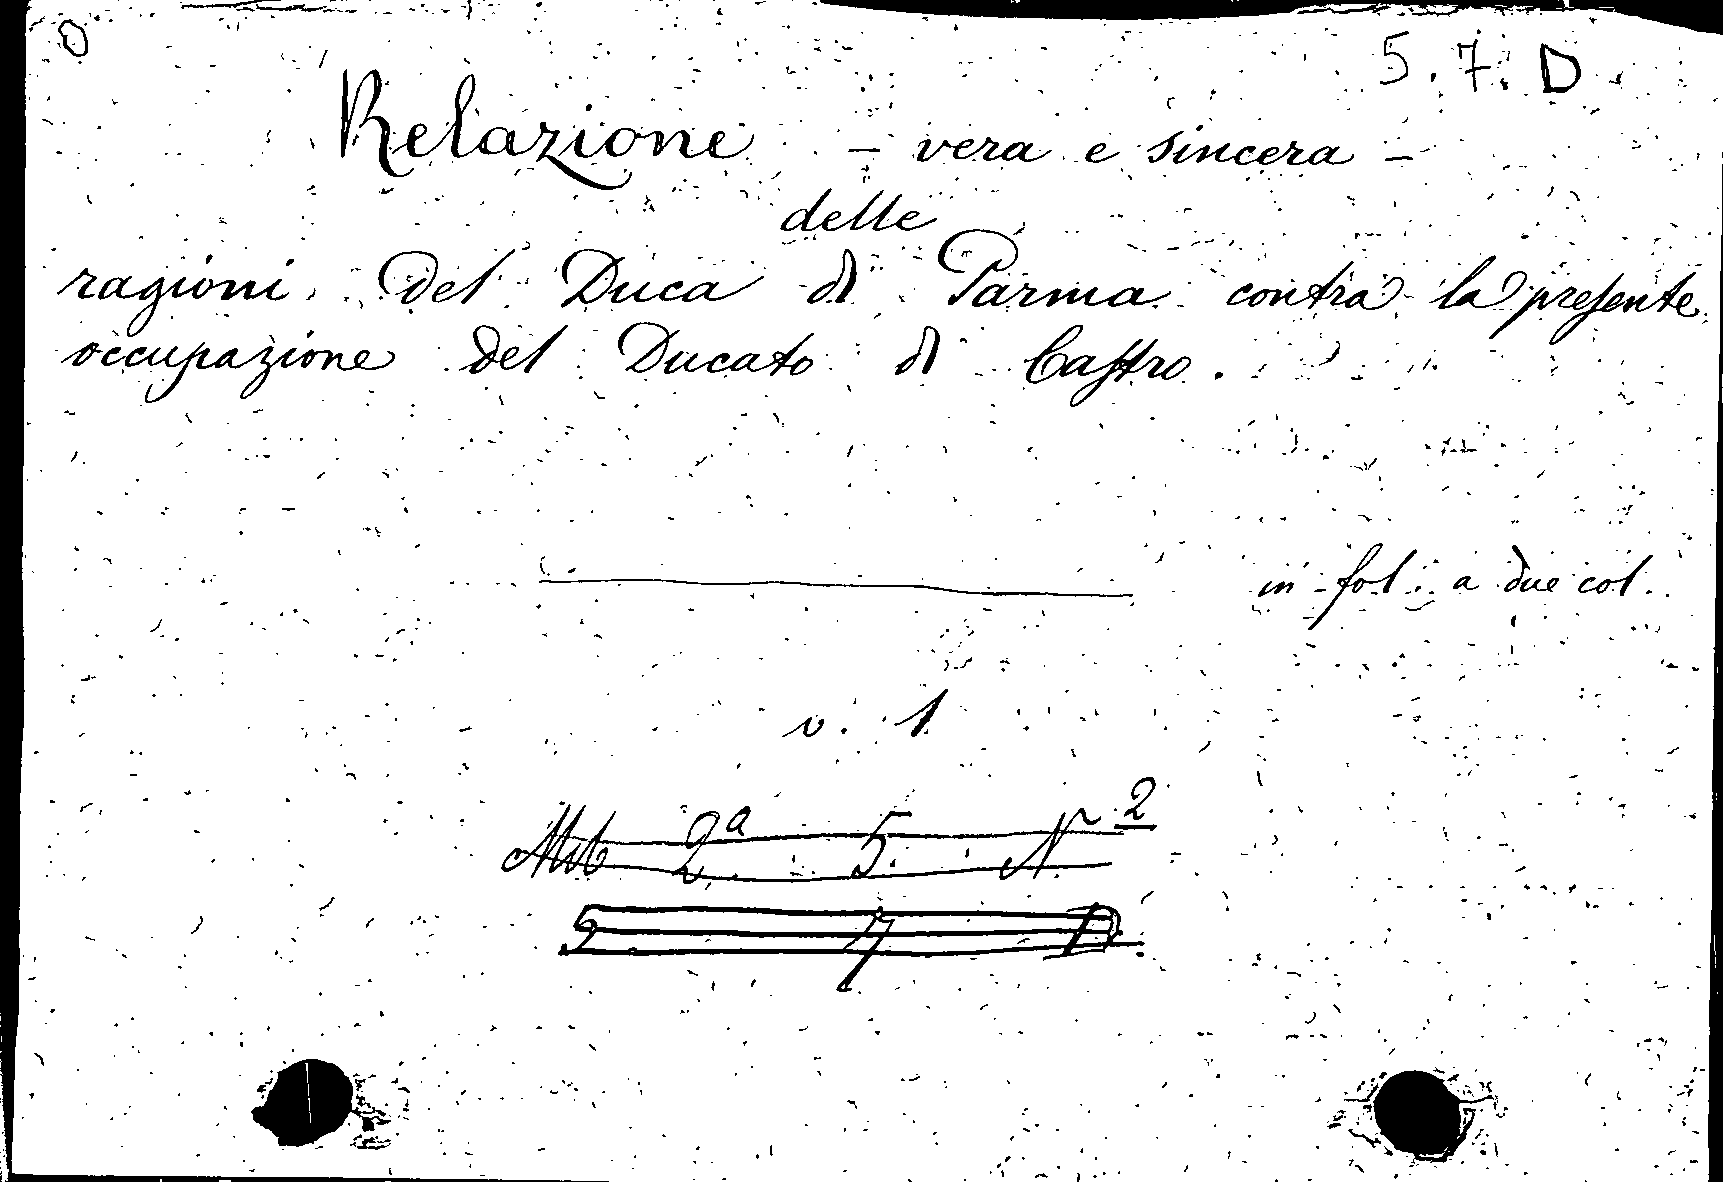 5. 7. D
Relazione - vera e sincera -
delle
ragioni del Duca di Parma contra la presente
occupazione del Ducato di Castro.
in fol. a due col.
v. 1
2ª 5. N. 2
7 D